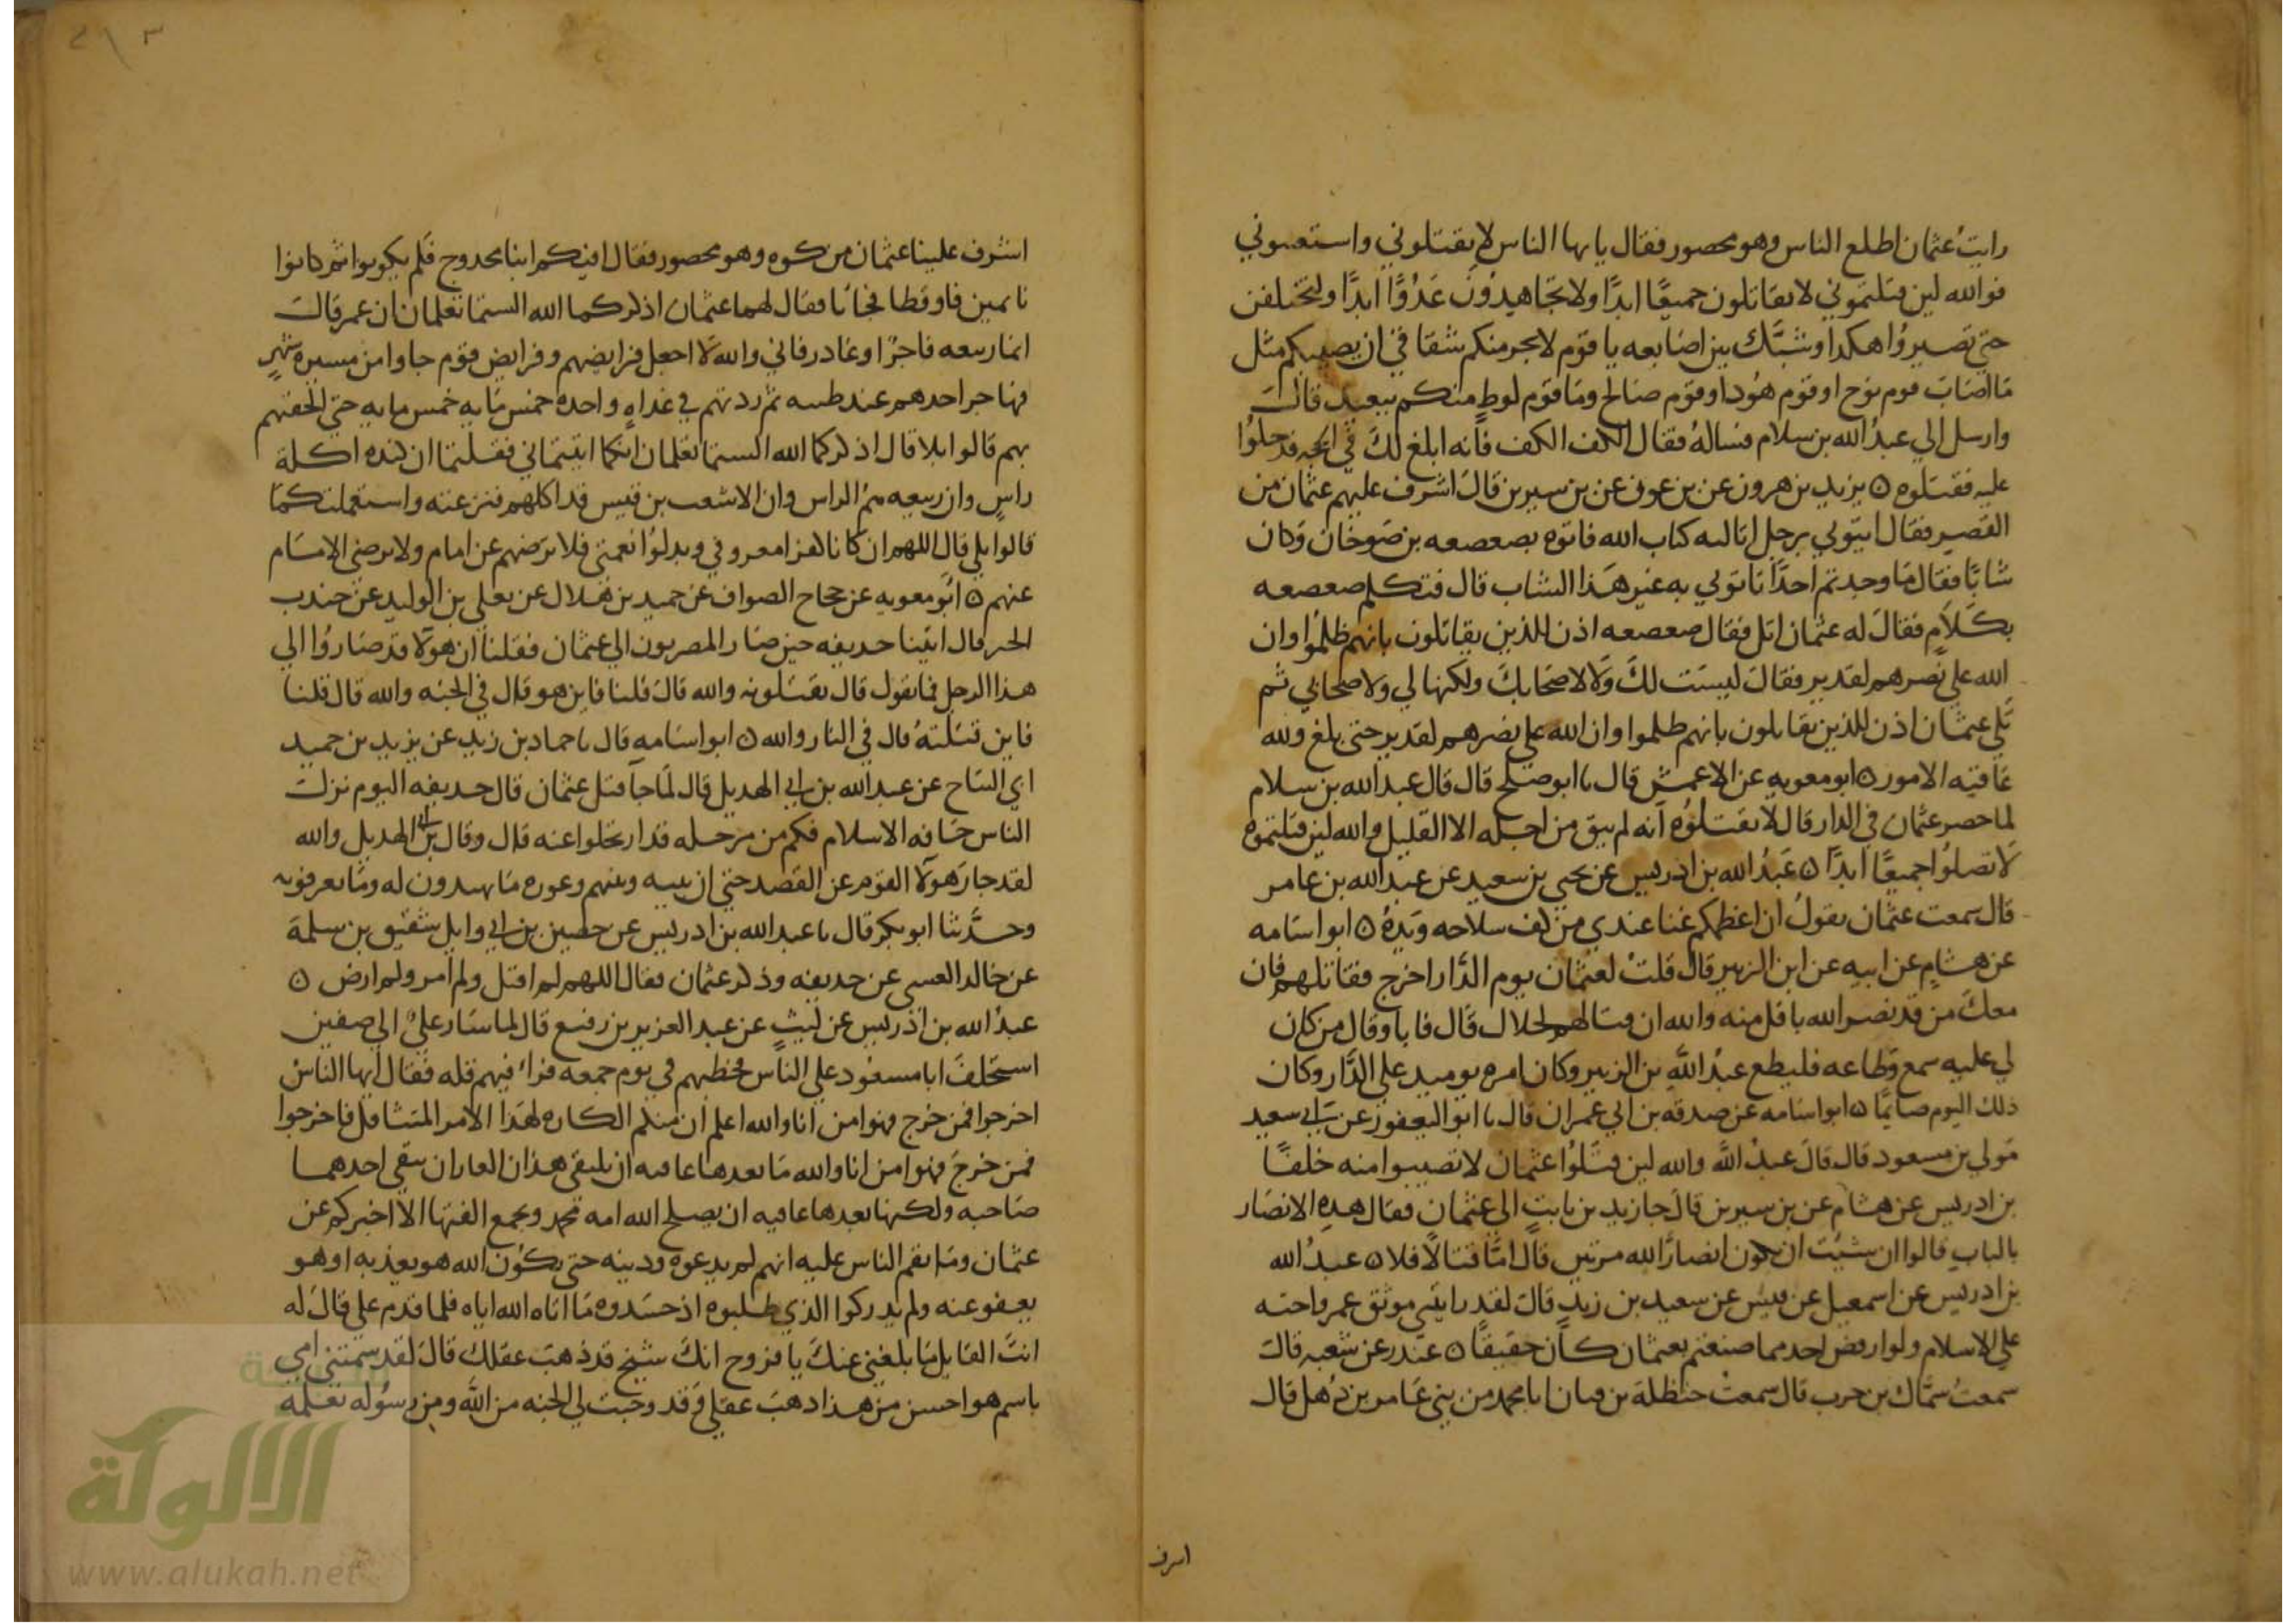 رايت عثمان اطلع الناس وهو محصور فقال يا يها الناس لا تقتلوني واستعتبوني
فوالله لين قتلتموني لا تقاتلون جميعًا ابدًا ولا تجاهدون عَدُوًّا ابدًا ولتختلفن
حتي تصيروا هكذا وشبَّك بين اصابعه يا قوم لا يجرمنكم شقاقي ان يصيبكم مثل
ما اصاب قوم نوح او قوم هود او قوم صالح وما قوم لوط منكم ببعيد قال
وارسل الي عبد الله بن سلام فساله فقال الكف الكف فانه ابلغ لك في الحجه فدخلوا
عليه فقتلوه ٥ يزيد بن هرون عن بن عون عن بن سيرين قال اشرف عليهم عثمان من
القصر فقال ايتوني برجل اتاليه كتاب الله فاتوه بصعصعه بن صوخان وكان
شابًا فقال ما وجدتم احدًا تاتوني به غير هذا الشاب قال فتكلم صعصعه
بكلام فقال له عثمان اتل فقال صعصعه اذن للذين يقاتلون بانهم ظلموا وان
الله علي نصرهم لقدير فقال ليست لك ولا لاصحابك ولكنها لي ولاصحابي ثم
تلي عثمان اذن للذين يقاتلون بانهم ظلموا وان الله علي نصرهم لقدير حتي بلغ ولله
عاقبه الامور ٥ ابو معويه عن الاعمش قال نا ابو صلح قال قال عبد الله بن سلام
لما حصر عثمان في الدار قال لا تقتلوه انه لم يبق من اجله الا القليل والله لين قتلتموه
لا تصلوا جميعًا ابدًا ٥ عبد الله بن ادريس عن يحيي بن سعيد عن عبد الله بن عامر
قال سمعت عثمان يقول ان اعظمكم غنا عندي من كف سلاحه ويده ٥ ابو اسامه
عن هشام عن ابيه عن ابن الزبير قال قلت لعثمان يوم الدار اخرج فقاتلهم فان
معك من قد نصر الله باقل منه والله ان قتالهم لحلال قال فابا وقال من كان
لي عليه سمع وطاعه فليطع عبد الله بن الزبير وكان امره يوميد علي الدار وكان
ذلك اليوم صايمًا ٥ ابو اسامه عن صدقه بن ابي عمران قال نا ابو اليعفور عن ابي سعيد
مولي بن مسعود قال قال عبد الله والله لين قتلوا عثمان لا تصيبوا منه خلفًا
بن ادريس عن هشام عن بن سيرين قال جا زيد بن ثابت الي عثمان فقال هذه الانصار
بالباب قالوا ان شيت ان نكون انصار الله مرتين قال اما قتالا فلا ٥ عبد الله
بن ادريس عن اسمعيل عن قيس عن سعيد بن زيد قال لقد رايتني موثق عمر واخته
علي الاسلام ولو ارفض احد مما صنعتم بعثمان كان حقيقًا ٥ غندر عن شعبه قال
سمعت سماك بن حرب قال سمعت حنظلة بن قنان ابا محمد من بني عامر بن ذهل قال
اسرف
اشرف علينا عثمان من كوه وهو محصور فقال افيكم ابنا محدوج فلم يكونوا ثم كانوا
نايمين فاوقظا فجاا فقال لهما عثمان اذكركما الله الستما تعلمان ان عمر قال
انما ربيعه فاجرًا وغادر فاني والله لا اجعل فرايضهم وفرايض قوم جاوا من مسيره شهر
فهاجر احدهم عند طنبه ثم زدتهم في غداه واحده خمس مايه خمس مايه حتي الحقتهم
بهم قالوا بلا قال اذكركما الله الستما تعلمان انكما اتيتماني فقلتما ان كنده اكلة
راس وان ربيعه هم الراس وان الاشعب بن قيس قد اكلهم فنزعته واستعملتكما
قالوا بلي قال اللهم ان كانا كفرا معروفي وبدلوا نعمتي فلا ترضهم عن امام ولا ترضي الامام
عنهم ٥ ابو معويه عن حجاح الصواف عن حميد بن هلال عن يعلي بن الوليد عن جندب
الخير قال اتينا حديفه حين صار المصريون الي عثمان فقلنا ان هولا قد صاروا الي
هذا الرجل فما تقول قال يقتلونه والله قال قلنا فاين هو قال في الجنه والله قال قلنا
فاين قتلته قال في النار والله ٥ ابو اسامه قال نا حماد بن زيد عن يزيد بن حميد
ابي التياح عن عبد الله بن ابي الهديل قال لما جا قتل عثمان قال حديفه اليوم نزلت
الناس حافه الاسلام فكم من مرحله قد ارتحلوا عنه قال وقال بن ابي الهديل والله
لقد جار هولا القوم عن القصد حتي ان بينه وبينهم وعوره ما يهتدون له وما يعرفونه
وحدثنا ابو بكر قال نا عبد الله بن ادريس عن حصين بن ابي وايل شقيق بن سلمة
عن خالد العبسي عن حديفه وذكر عثمان فقال اللهم لم اقتل ولم امر ولم ارض ٥
عبد الله بن ادريس عن ليث عن عبد العزيز بن رفيع قال لما سار علي الي صفين
استخلف ابا مسعود علي الناس فخطبهم في يوم جمعه فراء فيهم قله فقال ايها الناس
اخرجوا فمن خرج فهو امن انا والله اعلم ان منكم الكاره لهذا الامر المتثاقل فاخرجوا
فمن خرج فهو امن انا والله ما نعدها عافيه ان يلتقي هذان الغاران يتقي احدهما
صاحبه ولكنها نعدها عافيه ان يصلح الله امه محمد ويجمع الفتها الا اخبركم عن
عثمان وما نقم الناس عليه انهم لم يدعوه ودينه حتي يكون الله هو يعذبه او هو
يعفو عنه ولم يدركوا الذي طلبوه اذ حسدوه ما اتاه الله اياه فلما قدم علي قال له
انت القايل ما بلغني عنك يا فروح انك شيخ قد ذهب عقلك قال لقد سمتني امي
باسم هو احسن من هذا ذهب عقلي وقد وجبت لي الجنه من الله ومن رسوله تعلمه
الألوكة
www.alukah.net